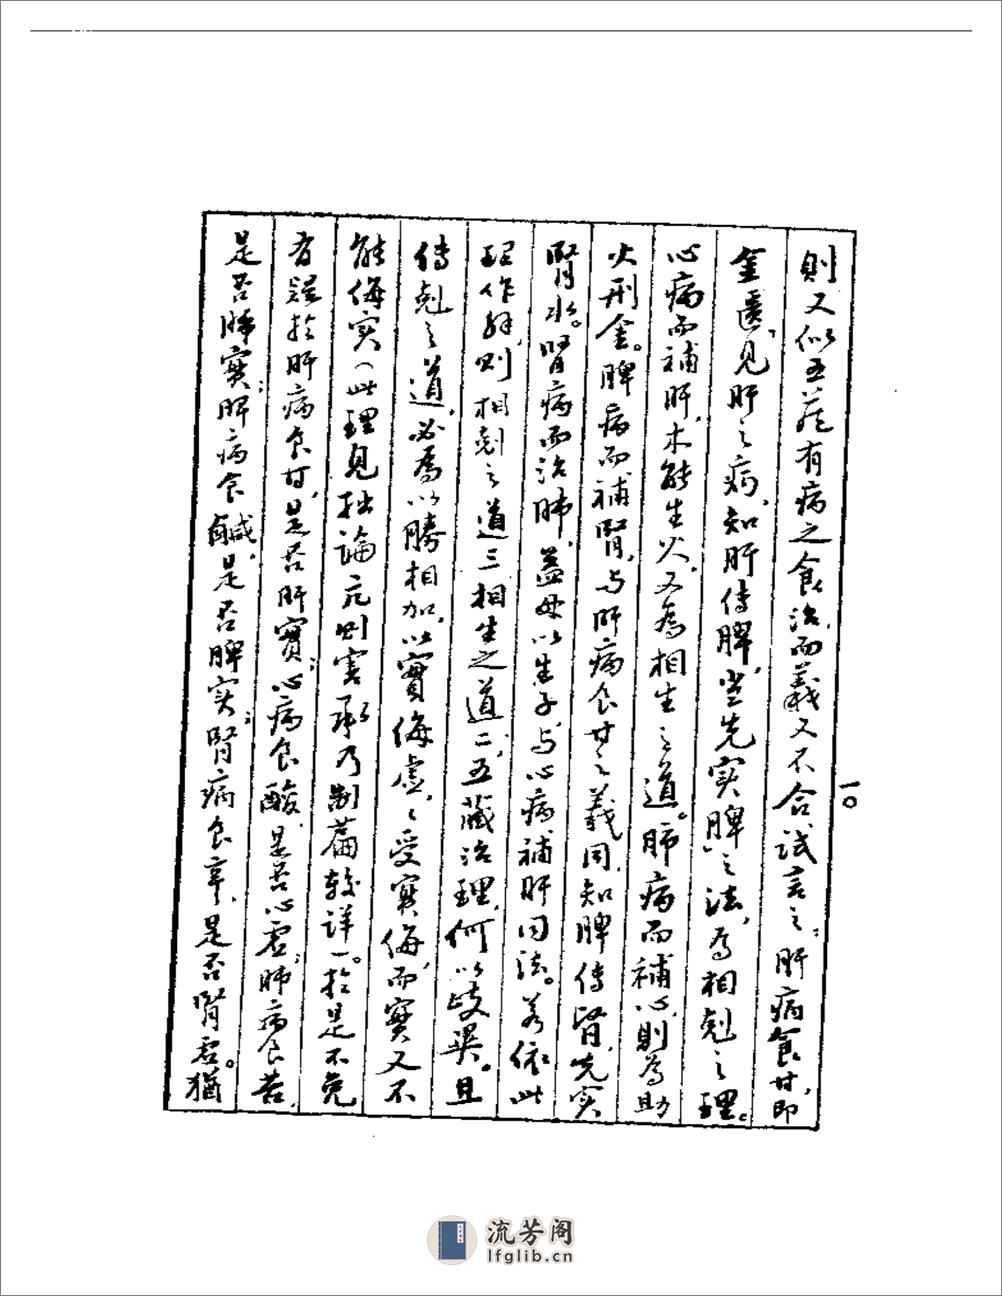 則又似五藏有病之食治，而義又不合，試言之：肝病食甘，即
金匱，見肝之病，知肝傳脾，當先实脾」之法，為相剋之理。
心病而補肝，木能生火，又為相生之道。肺病而補心，則為助
火刑金。脾病而補腎，与肝病食甘之義同，知脾傳腎，先实
腎水。腎病而治肺，益母以生子，与心病補肝同法。若依此
理作解，则相剋之道三，相生之道二，五藏治理，何以歧異。且
傳剋之道，必為以勝相加，以實侮虛，〻受寔侮，而寔又不
能侮实（此理見拙論亢则害承乃制篇較詳）。於是不免
有疑於肝病食甘，是否肝實；心病食酸，是否心虛；肺病食苦，
是否肺寔；脾病食鹹，是否脾实；腎病食辛，是否腎虛。猶
一〇
流芳阁
lfglib.cn